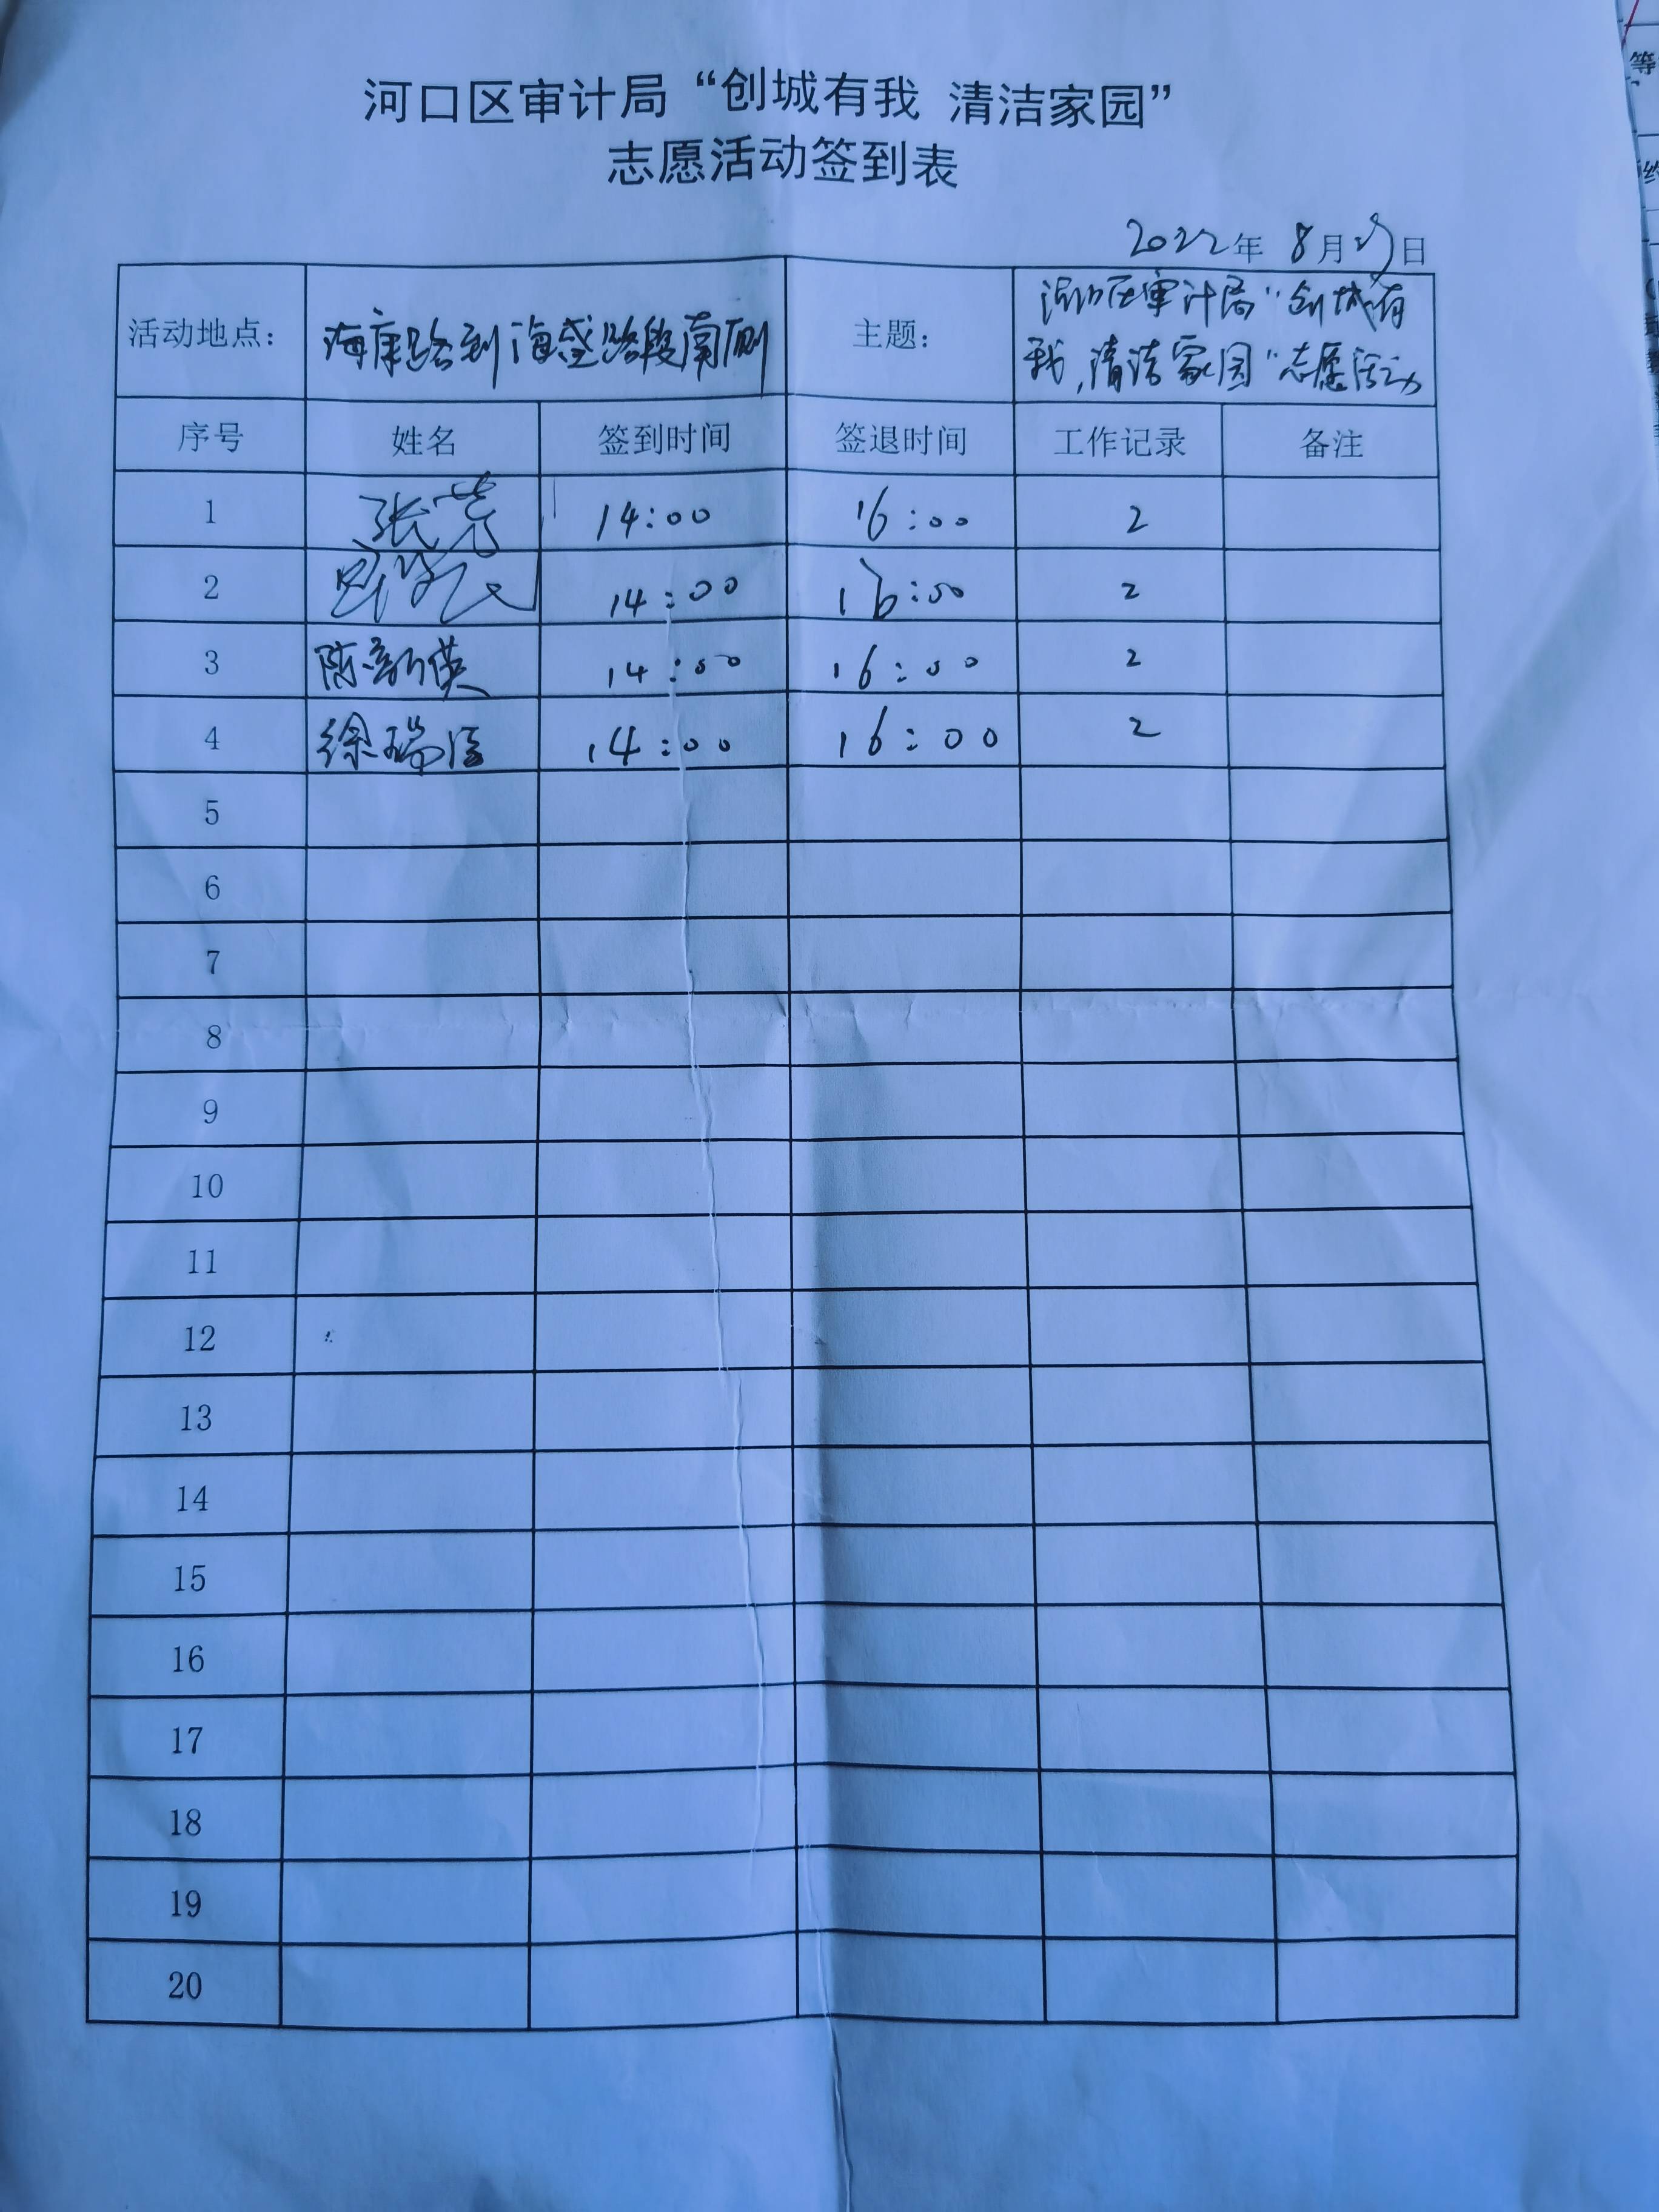 河口区审计局“创城有我 清洁家园”
志愿活动签到表
2022年 8月 日
活动地点： 海康路到海盛路段南侧 主题： 河口区审计局“创城有
我，清洁家园”志愿活动
序号 姓名 签到时间 签退时间 工作记录 备注
1 张芳 14:00 16:00 2
2 14:00 16:00 2
3 陈新英 14:00 16:00 2
4 徐瑞 14:00 16:00 2
5
6
7
8
9
10
11
12
13
14
15
16
17
18
19
20